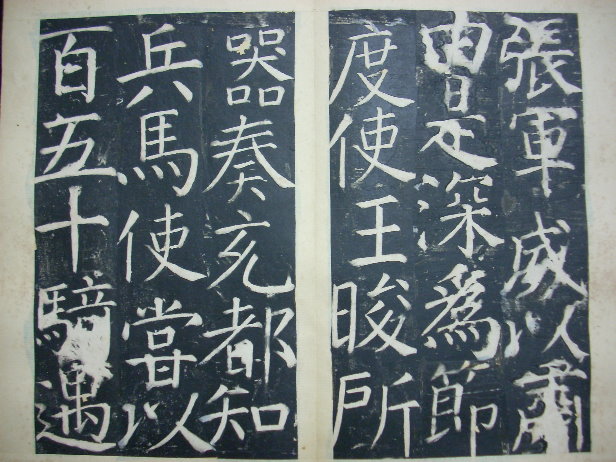 張軍威以肅
由是深爲節
度使王晙所
器奏充都知
兵馬使嘗以
百五十騎遇